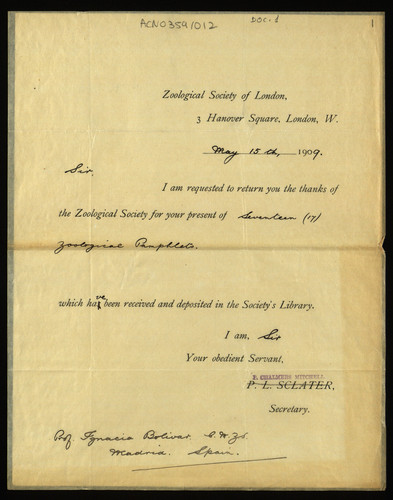 ACN0359/012
DOC. d
1
Zoological Society of London,
3 Hanover Square, London, W.
May 15th, 1909.
Sir,
I am requested to return you the thanks of
the Zoological Society for your present of Seventeen (17)
Zoological Pamphlets.
which have been received and deposited in the Society's Library.
I am, Sir
Your obedient Servant,
P. CHALMERS MITCHELL
P. L. SCLATER,
Secretary.
Prof Ignacia Bolivar.
Madrid. Spain.